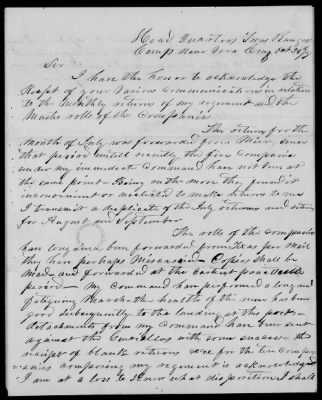 Head Quarters Texas Rangers
Camp Near Vera Cruz Oct 26/47
Sir
I have the honor to acknowledge the
Receipt of your Various Communications in relation
to the Monthly return of my regiment and the
Muster rolls of the Companies
The return for the
Month of July was forwarded from Mier, Since
that period untill recently the five Companies
under my immediate Command have not been at
the same point - Being on the move they found it
inconvenient or neglected to make returns to me
I transmit a duplicate of the July returns and return
for August and September
The rolls of the companies
have long since been forwarded from Texas per Mail
they have perhaps Miscarried - Copies shall be
made and forwarded at the earliest practicable
period - My Command has performed a long and
fatiguing March - the health of the men has been
good subsequently to the landing at this port -
detachments from my command have been sent
against the Guerillas with some success the
receipt of blank returns &c for the ten Compa-
nies composing my regiment is acknowledged
I am at a loss to know what disposition I shall